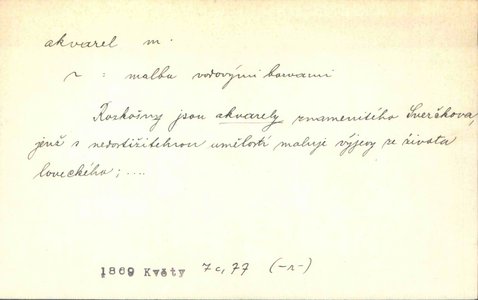 akvarel m.
~ = malba vodovými barvami
Rozkošny jsou akvarely znamenitého Sverčkova,
jenž s nedostižitelnou umělostí maluje výjevy ze života
loveckého; ....
1869 Květy 7c, 77 (-r-)